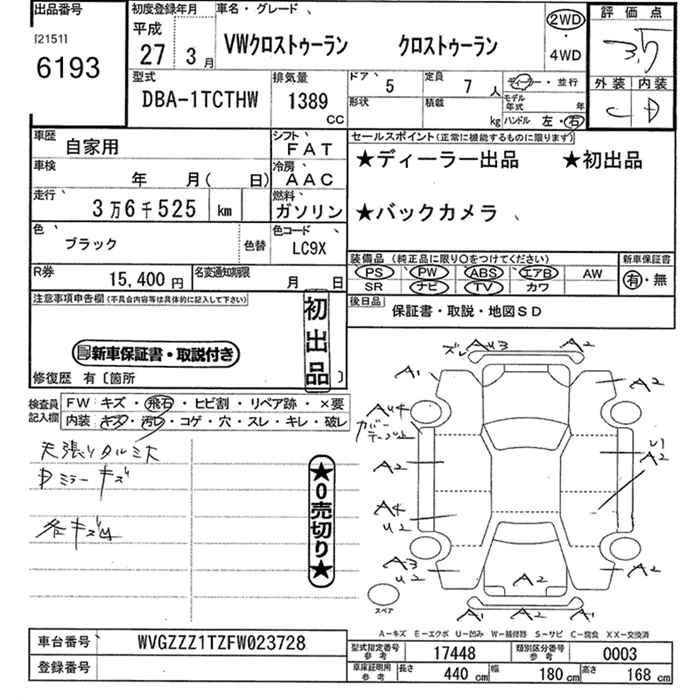 出品番号 初度登録年月 車名・グレード 2WD 評価点
[21511 平成
6193 27 3月 VWクロストゥーラン クロストゥーラン ・ 3.5
4WD
型式 排気量 ドア 5 定員 7人 ディーラー・並行 外装 内装
DBA-1TCTHW 1389 CC 形状 積載 kg モデル年式 年 C D
ハンドル 左・右
車歴 自家用 シフト FAT セールスポイント(正常に機能するものに限ります)
車検 年 月( 日) 冷房 AAC ★ディーラー出品 ★初出品
走行 3万6千525 km 燃料 ガソリン ★バックカメラ
色 ブラック 色替 色コード LC9X
装備品(純正品に限り○をつけてください) 新車保証書
R券 15,400円 名変通知期限 月 日 PS PW ABS エアB AW 有・無
SR ナビ TV カワ
注意事項申告欄(不具合内容等は具体的に記入して下さい) 初出品 後日品 保証書・取説・地図SD
記録簿新車保証書・取説付き
修復歴 有〔箇所 〕
検査員記入欄 FW キズ・飛石・ヒビ割・リペア跡・×要
内装 キズ・汚レ・コゲ・穴・スレ・キレ・破レ
ズレ AU3 A2
A1 A2
AU4
カバーテープ止
天張りタルミ大 U1
Dミラーキズ A2 A2
★0売切り★
各キズ凹 A4
U2
A3
U2 A2 A2 A2
スペア
A1 A2 A2
A-キズ E-エクボ U-凹み W-補修跡 S-サビ C-腐食 XX-交換済
車台番号 WVGZZZ1TZFW023728 型式指定番号 参考 17448 類別区分番号 参考 0003
登録番号 車庫証明用 参考 長さ 440 cm 幅 180 cm 高さ 168 cm